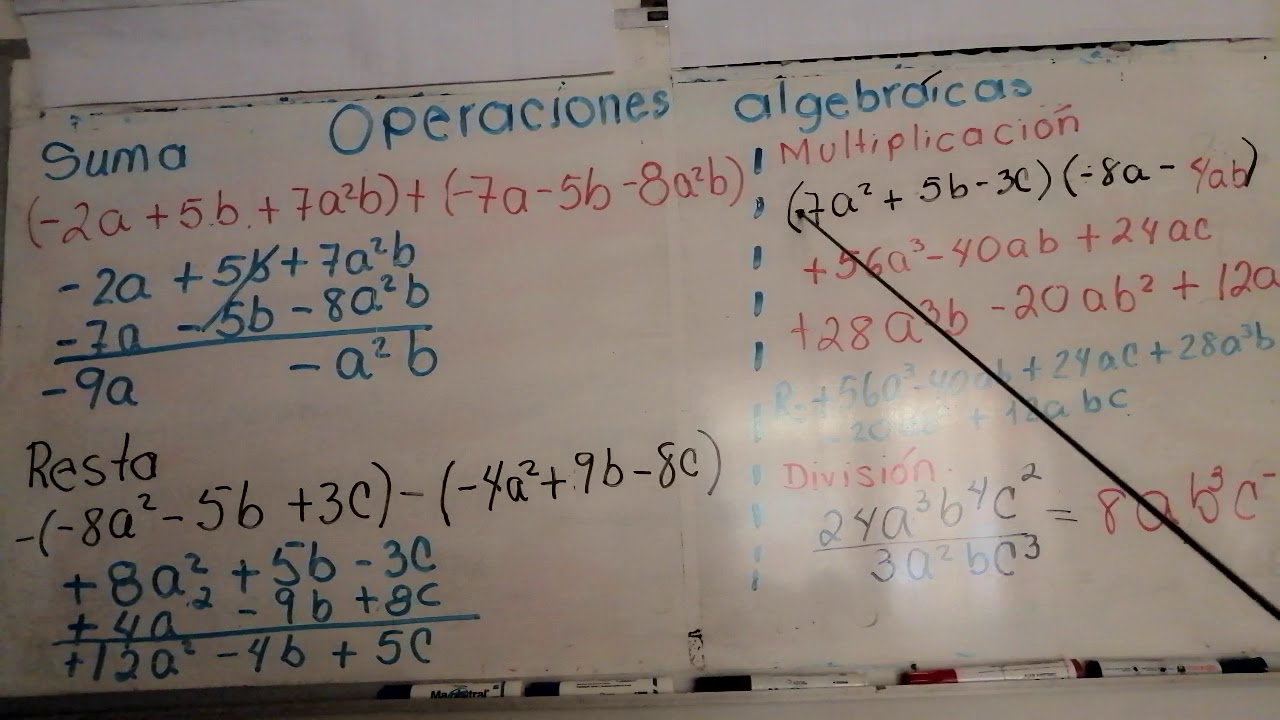 Operaciones algebraicas
Suma
(-2a + 5b + 7a²b) + (-7a - 5b - 8a²b)
-2a + 5b + 7a²b
-7a - 5b - 8a²b
-9a - a²b
Resta
-(-8a² - 5b + 3c) - (-4a² + 9b - 8c)
+8a² + 5b - 3c
+4a² - 9b + 8c
+12a² - 4b + 5c
Multiplicación
(-7a² + 5b - 3c) (-8a - 4ab)
+56a³ - 40ab + 24ac
+28a³b - 20ab² + 12a
R= +56a³ - 40ab + 24ac + 28a³b
- 20ab² + 12abc
División
24a³b⁴c² = 8ab³c⁻
3a²bc³
Magistral